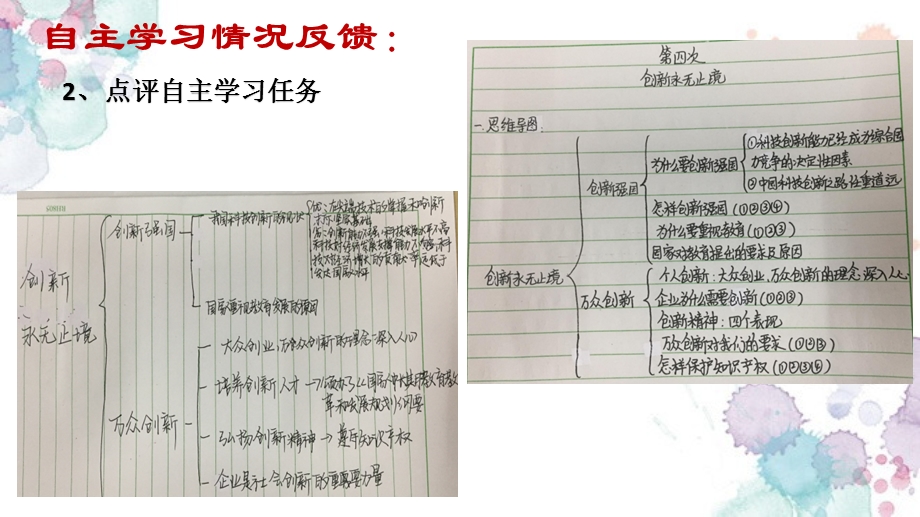 自主学习情况反馈：
2、点评自主学习任务
创新
永无止境
创新强国
我国科技创新的现状
优：在尖端技术的掌握和创新
方面
国家重视教育发展的原因
万众创新
大众创业，万众创新的理念深入人心
培养创新人才→颁布了《国家中长期教育改
革和发展规划纲要
弘扬创新精神→尊重知识产权
企业是社会创新的重要力量
第四次
创新永无止境
一.思维导图：
创新永无止境
创新强国
为什么要创新强国
①科技创新能力已经成为综合国
力竞争的决定性因素
②中国科技创新之路任重道远
怎样创新强国（①②③④）
为什么要重视教育（①②③）
国家对教育提出的要求及原因
万众创新
个人创新：大众创业，万众创新的理念深入人心
企业为什么需要创新（①②③）
创新精神：四个表现
万众创新对我们的要求（①②③）
怎样保护知识产权（①②③④）